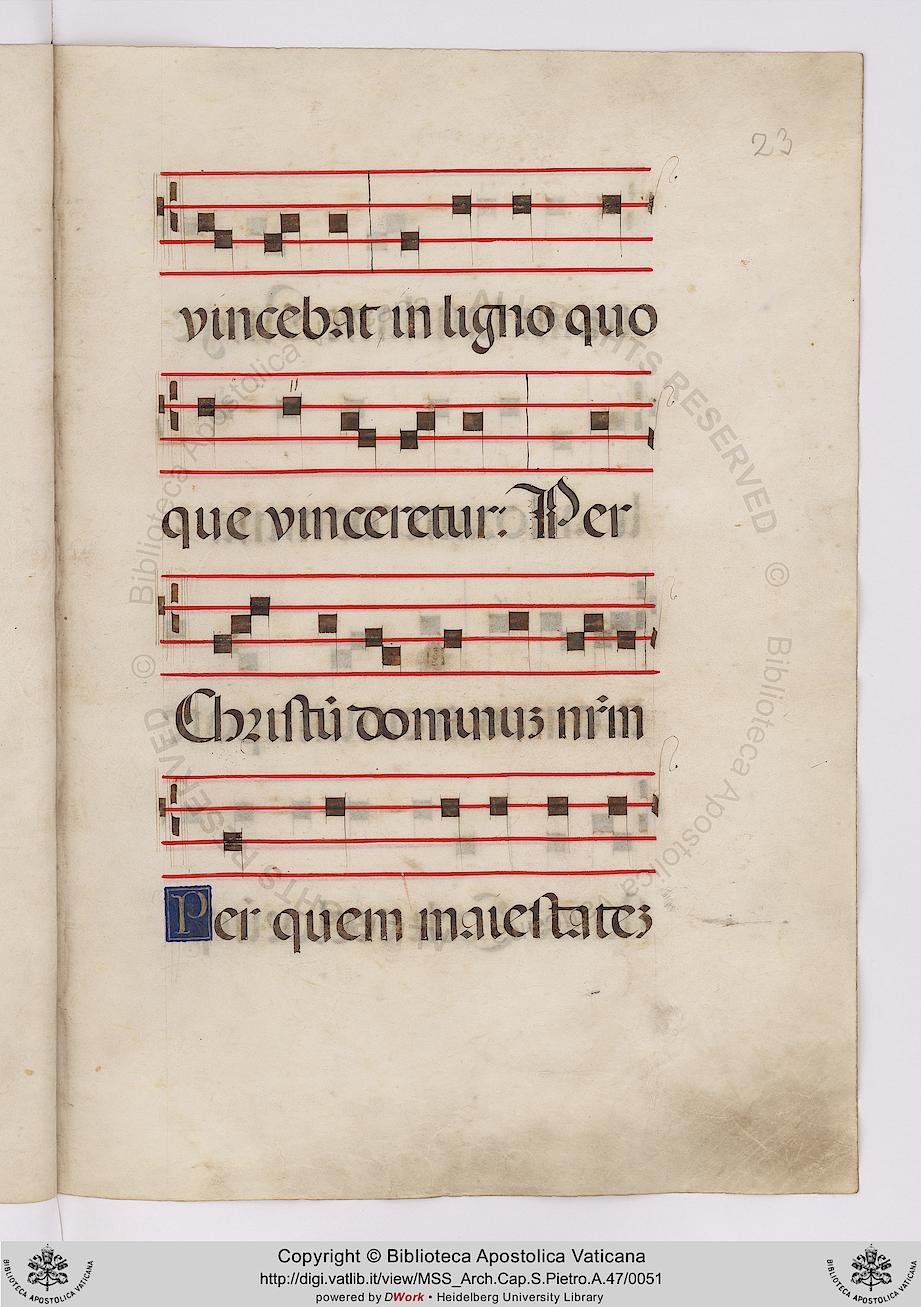 23
vincebat in ligno quo
que vinceretur: Per
Christū dominuꝫ nr̄m
Per quem maiestateꝫ
© Biblioteca Apostolica Vaticana ALL RIGHTS RESERVED
© Biblioteca Apostolica
RIGHTS RESERVED
Copyright © Biblioteca Apostolica Vaticana
http://digi.vatlib.it/view/MSS_Arch.Cap.S.Pietro.A.47/0051
powered by DWork • Heidelberg University Library
BIBLIOTECA APOSTOLICA VATICANA
BIBLIOTECA APOSTOLICA VATICANA